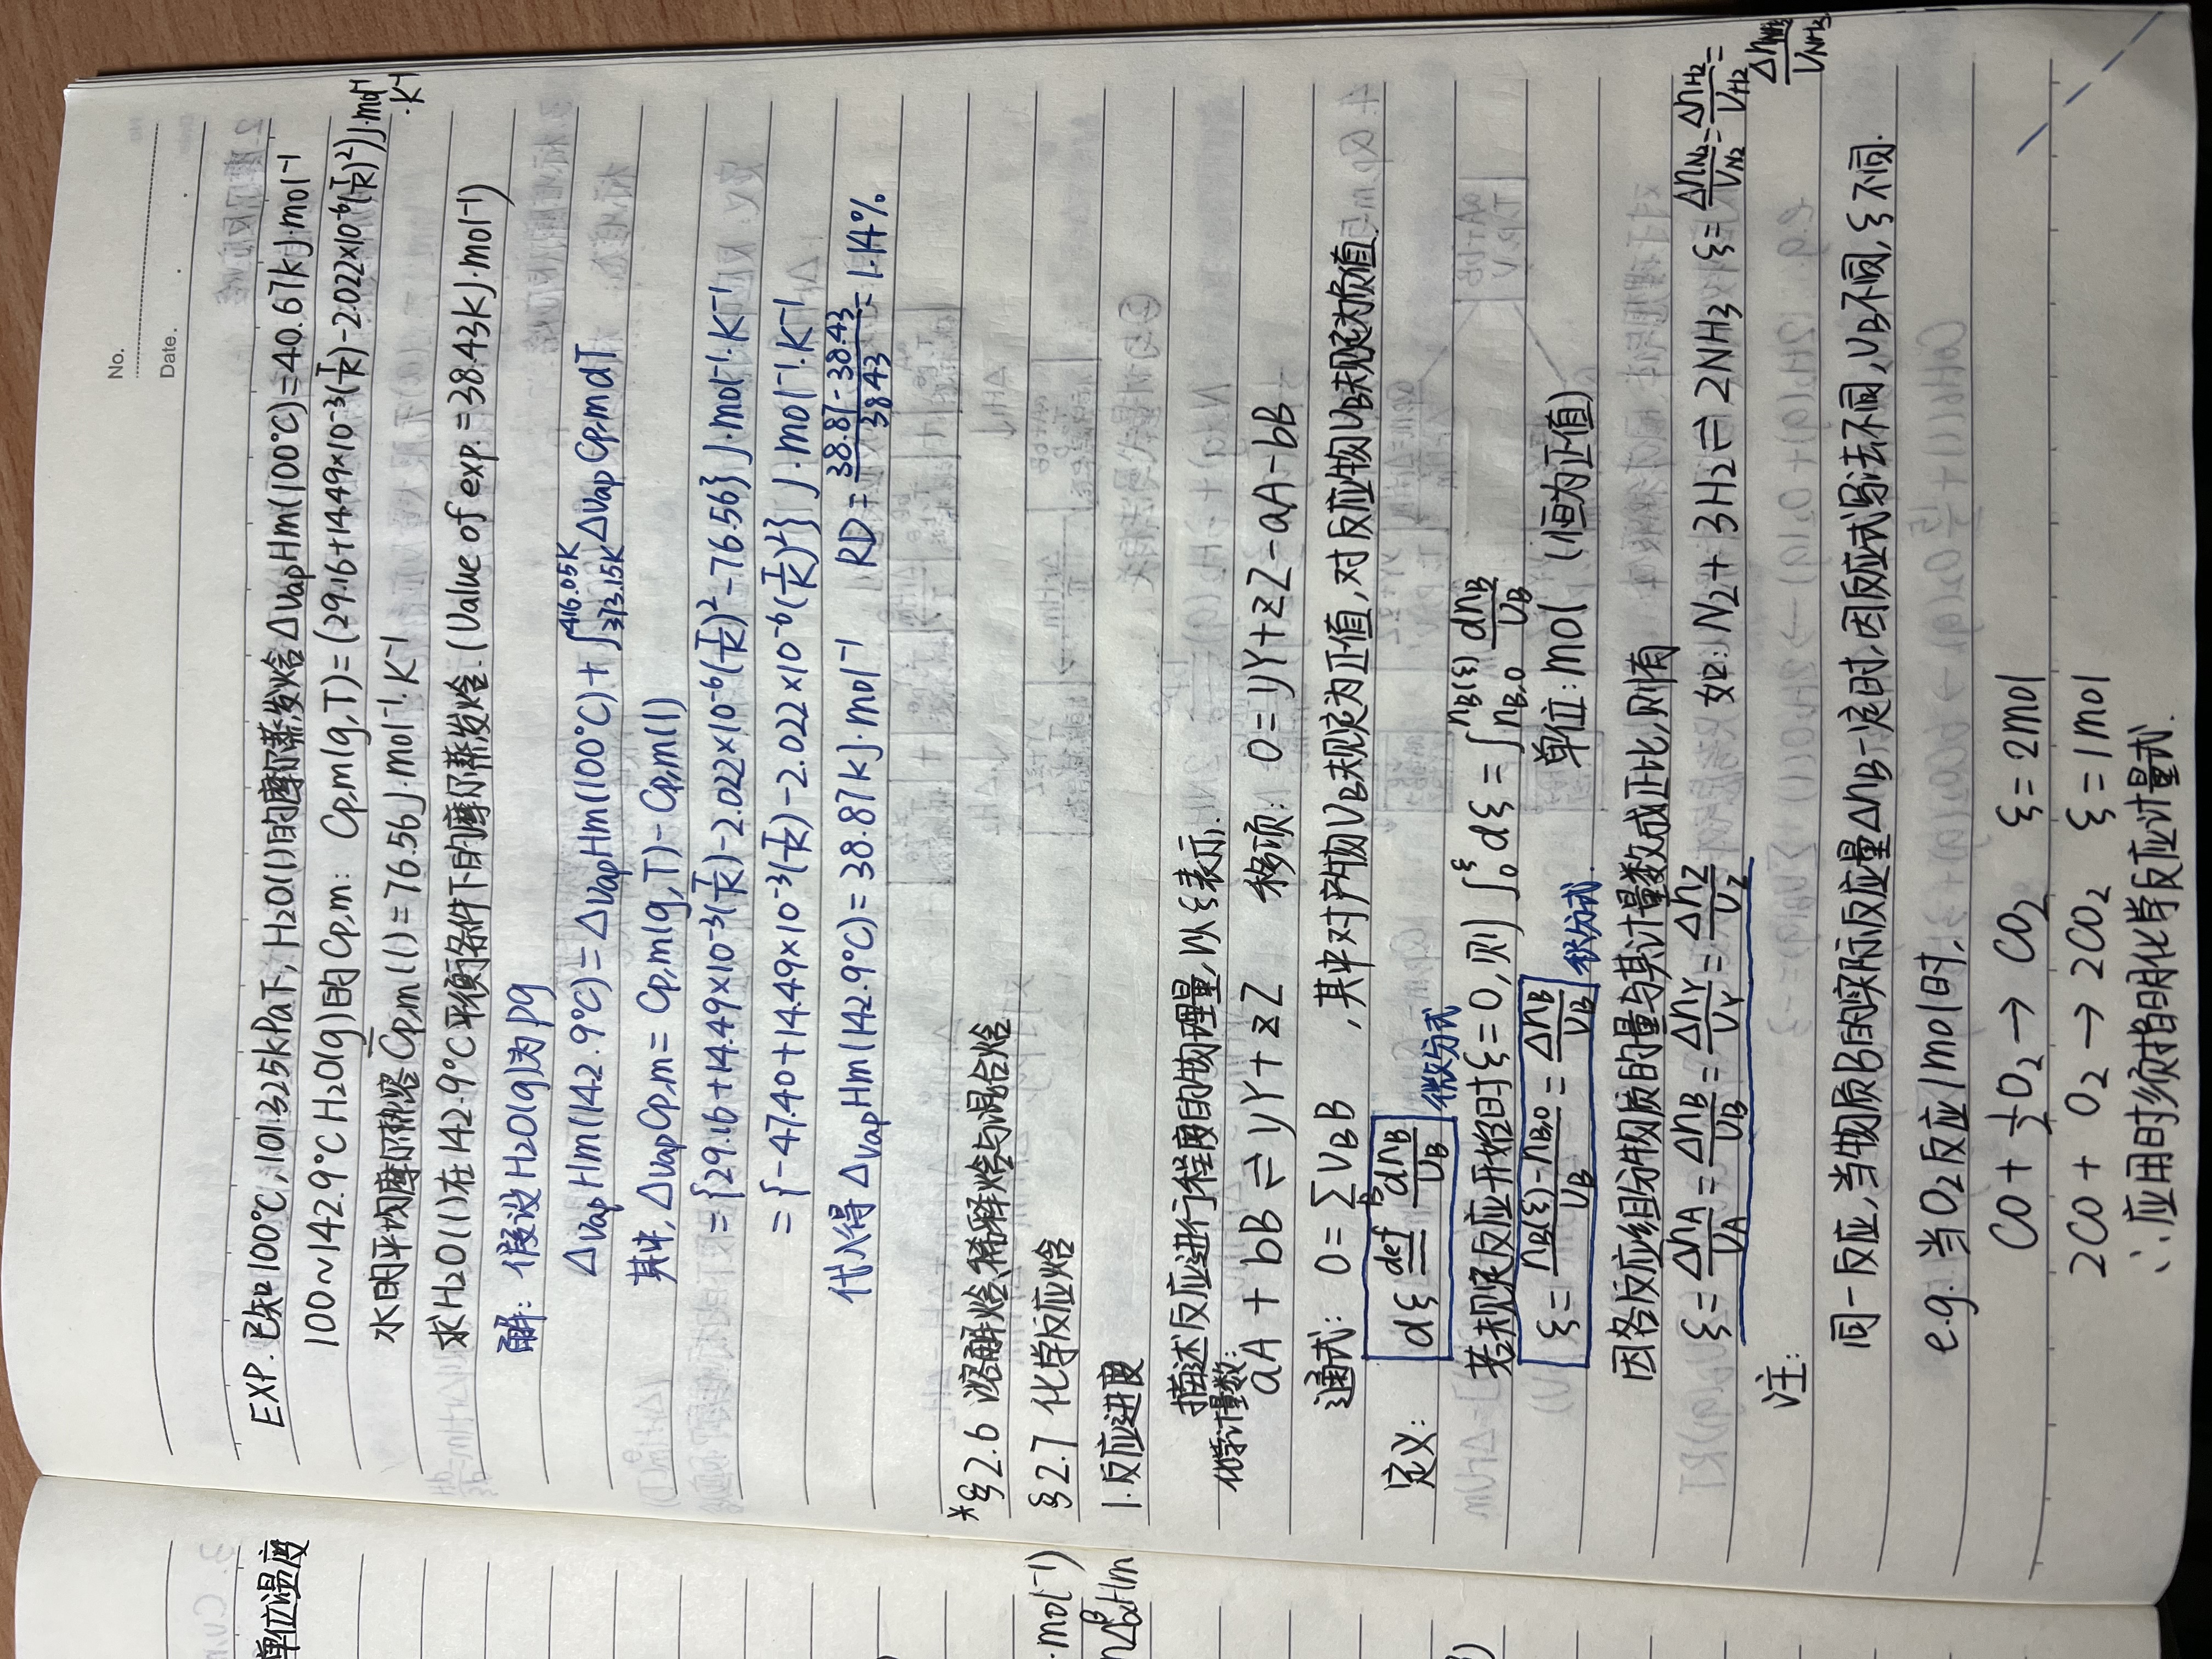 No.
Date.
单位温度
EXP. 已知100°C, 101.325kPa下, H2O(l)的摩尔蒸发焓ΔvapHm(100°C)=40.67kJ·mol⁻¹
100~142.9°C H2O(g)的Cp,m: Cp,m(g,T)=(29.16+14.49×10⁻³(T/K)-2.022×10⁻⁶(T/K)²)J·mol⁻¹·K⁻¹
水的平均摩尔热容 C̅p,m(l)=76.56J·mol⁻¹·K⁻¹
求H2O(l)在142.9°C平衡条件下的摩尔蒸发焓.(Value of exp.=38.43kJ·mol⁻¹)
解: 假设H2O(g)为pg
ΔvapHm(142.9°C)=ΔvapHm(100°C)+∫373.15K 416.05K ΔvapCp,mdT
其中, ΔvapCp,m=Cp,m(g,T)-Cp,m(l)
={29.16+14.49×10⁻³(T/K)-2.022×10⁻⁶(T/K)²-76.56} J·mol⁻¹·K⁻¹
={-47.40+14.49×10⁻³(T/K)-2.022×10⁻⁶(T/K)²} J·mol⁻¹·K⁻¹
代入得ΔvapHm(142.9°C)=38.87kJ·mol⁻¹ RD=(38.87-38.43)/38.43=1.14%
*§2.6 溶解焓、稀释焓与混合焓
·mol⁻¹)
§2.7 化学反应焓
nΔαβHm
1.反应进度
描述反应进行程度的物理量,以ξ表示.
化学计量数:
aA + bB ⇌ yY+zZ 移项: 0=yY+zZ-aA-bB
通式: 0=∑B νB B ,其中对产物νB规定为正值,对反应物νB规定为负值.
定义: dξ def== dnB/νB 微分式
若规定反应开始时ξ=0,则 ∫0 ξ dξ=∫nB,0 nB(ξ) dnB/νB
ξ=(nB(ξ)-nB,0)/νB=ΔnB/νB 积分式. 单位:mol (恒为正值)
因各反应组分物质的量与其计量数成正比,则有
ξ=ΔnA/νA=ΔnB/νB=ΔnY/νY=ΔnZ/νZ 如: N2+3H2⇌2NH3 ξ=ΔnN2/νN2=ΔnH2/νH2=ΔnNH3/νNH3
注:
同一反应,当物质B的实际反应量ΔnB一定时,因反应式写法不同,νB不同,ξ不同.
e.g. 当O2反应1mol时,
CO+½O2→ CO2 ξ=2mol
2CO+ O2→2CO2 ξ=1mol
∴应用时须指明化学反应计量式.